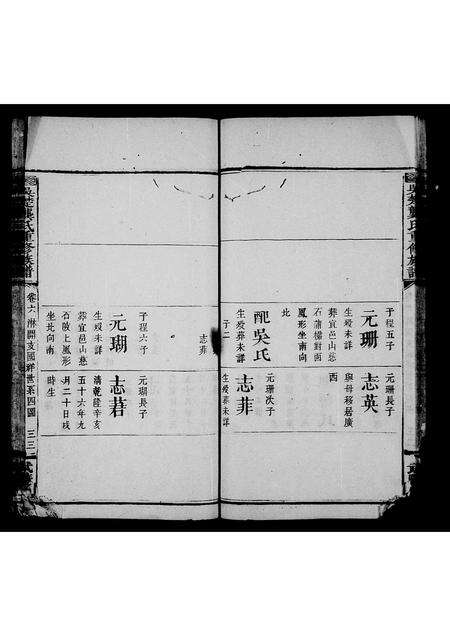 吳楚龔氏重修族譜
于程五子
元珊
生歿未詳
葬宜邑山慈
石蒲橋對西
鳳形坐南向
北
配吳氏
生歿葬未詳
子二
志英
志菲
元珊長子
志英
與母移居廣
西
元珊次子
志菲
生歿葬未詳
于程六子
元瑚
生歿未詳
葬宜邑山慈
石陂上鳳形
坐北向南
元瑚長子
志莙
清乾隆辛亥
五十六年九
月二十日戌
時生
吳楚龔氏重修族譜
卷六
三三